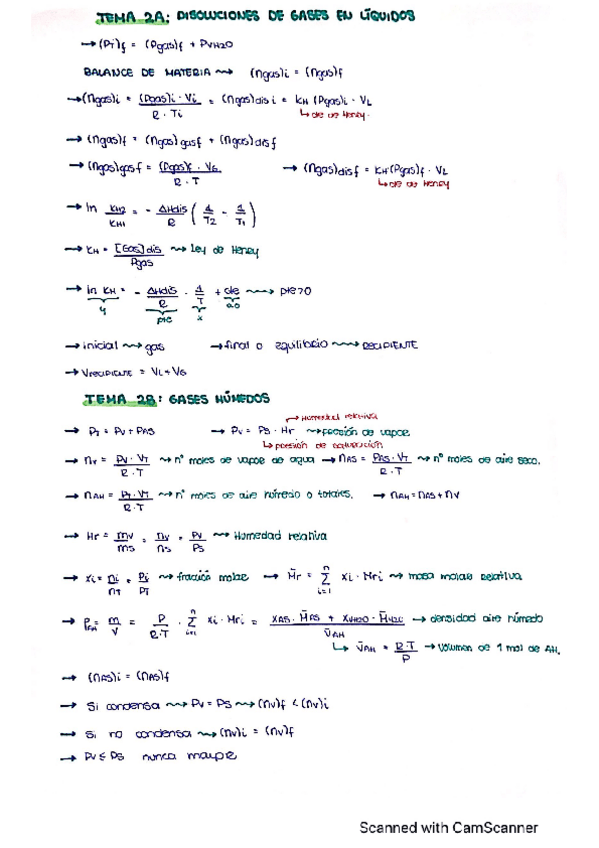 TEMA 2A: DISOLUCIONES DE GASES EN LÍQUIDOS
→ (Pi)f = (Pgas)f + PVH2O
BALANCE DE MATERIA ⇝ (ngas)i = (ngas)f
→ (ngas)i = (Pgas)i · Vi / R · Ti = (ngas)dis i = KH (Pgas)i · VL
↳ cte de Henry.
→ (ngas)f = (ngas)gasf + (ngas)disf
→ (ngas)gasf = (Pgas)f · VG / R · T → (ngas)disf = KH(Pgas)f · VL
↳ cte de Henry
→ ln KH2 / KH1 = - ΔHdis / R ( 1/T2 - 1/T1 )
→ KH = [Gas]dis / Pgas ⇝ Ley de Henry
→ ln KH = - ΔHdis / R · 1/T + cte ⇝ pte>0
y pte x
→ inicial ⇝ gas → final o equilibrio ⇝ RECIPIENTE
→ VRECIPIENTE = VL+VG
TEMA 2B: GASES HÚMEDOS
↱ Humedad relativa
→ PT = PV + PAS → PV = PS · Hr ⇝ presión de vapor
↳ presión de saturación
→ nV = PV · VT / R · T ⇝ nº moles de vapor de agua → nAS = PAS · VT / R · T ⇝ nº moles de aire seco.
→ nAH = PT · VT / R · T ⇝ nº moles de aire húmedo o totales. → nAH = nAS + nV
→ Hr = mV / mS = nV / nS = PV / PS ⇝ Humedad relativa
→ xi = ni / nT = Pi / PT ⇝ fracción molar → M̄r = Σ(i=1, n) xi · Mri ⇝ masa molar relativa
→ ρAH = m / V = P / R·T · Σ(i=1, n) xi · Mri = xAS · M̄AS + xVH2O · M̄H2O / ṽAH → densidad aire húmedo
↳ ṽAH = R·T / P → Volumen de 1 mol de AH.
→ (nAS)i = (nAS)f
→ Si condensa ⇝ PV = PS ⇝ (nV)f < (nV)i
→ Si no condensa ⇝ (nV)i = (nV)f
→ PV ≤ PS nunca mayor
Scanned with CamScanner